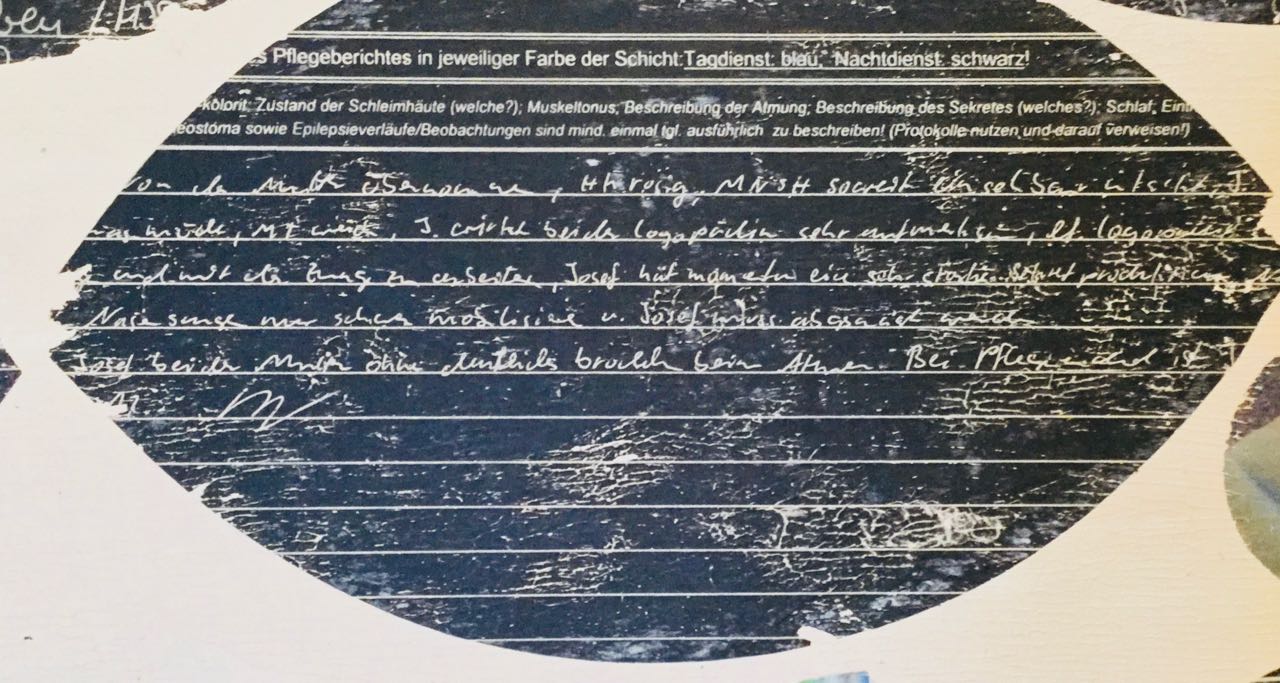 s Pflegeberichtes in jeweiliger Farbe der Schicht: Tagdienst: blau, Nachtdienst: schwarz!
kolorit; Zustand der Schleimhäute (welche?); Muskeltonus; Beschreibung der Atmung; Beschreibung des Sekretes (welches?); Schlaf;
eostoma sowie Epilepsieverläufe/Beobachtungen sind mind. einmal tgl. ausführlich zu beschreiben! (Protokolle nutzen und darauf verweisen!)
von der Mutter übernommen, HH rosig, MNSH soweit einsehbar intakt, J.
müde, MT weich, J. wirkte bei der Logopädin sehr aufmerksam, lt. Logopädin
und mit der Zunge zu arbeiten, Josef hat momentan eine sehr starke Sekretproduktion
Nase nur schwer mobilisiere u. Josef muss abgesaugt werden
Josef bei der Mutter ohne deutliches brodeln beim Atmen Bei Pflegeende ist